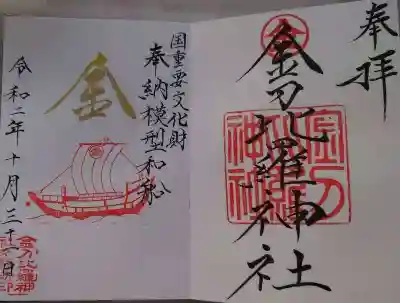 奉拝
金刀比羅神社
国重要文化財
奉納模型和舩
金
令和二年十月三十一日